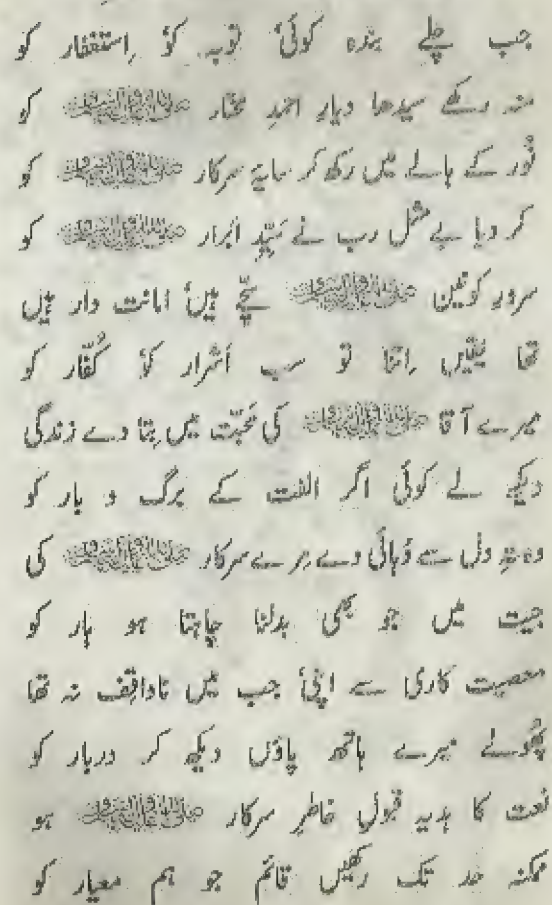 جب چلے بندہ کوئی توبہ کو، اِستغفار کو
منہ رکھے سیدھا دیارِ احمدِ مختار ﷺ کو
نُور کے ہالے میں رکھ کر سایۂ سرکار ﷺ کو
کر دیا بے مثل رب نے سَیّدِ ابرار ﷺ کو
سرورِ کونین ﷺ سچّے ہیں، امانت دار ہیں
تھا یقیں اِتنا تو سب اَشرار کو، کُفّار کو
میرے آقا ﷺ کی مَحبّت میں بِتا دے زندگی
دیکھ لے کوئی اگر الفت کے برگ و بار کو
وہ تہِ دل سے دُہائی دے مِرے سرکار ﷺ کی
جیت میں جو بھی بدلنا چاہتا ہو ہار کو
معصیت کاری سے اپنی، جب میں ناواقِف نہ تھا
پُھولے میرے ہاتھ پاؤں دیکھ کر دربار کو
نعت کا ہدیہ قبولِ خاطرِ سرکار ﷺ ہو
ممکنہ حد تک رکھیں قائم جو ہم معیار کو